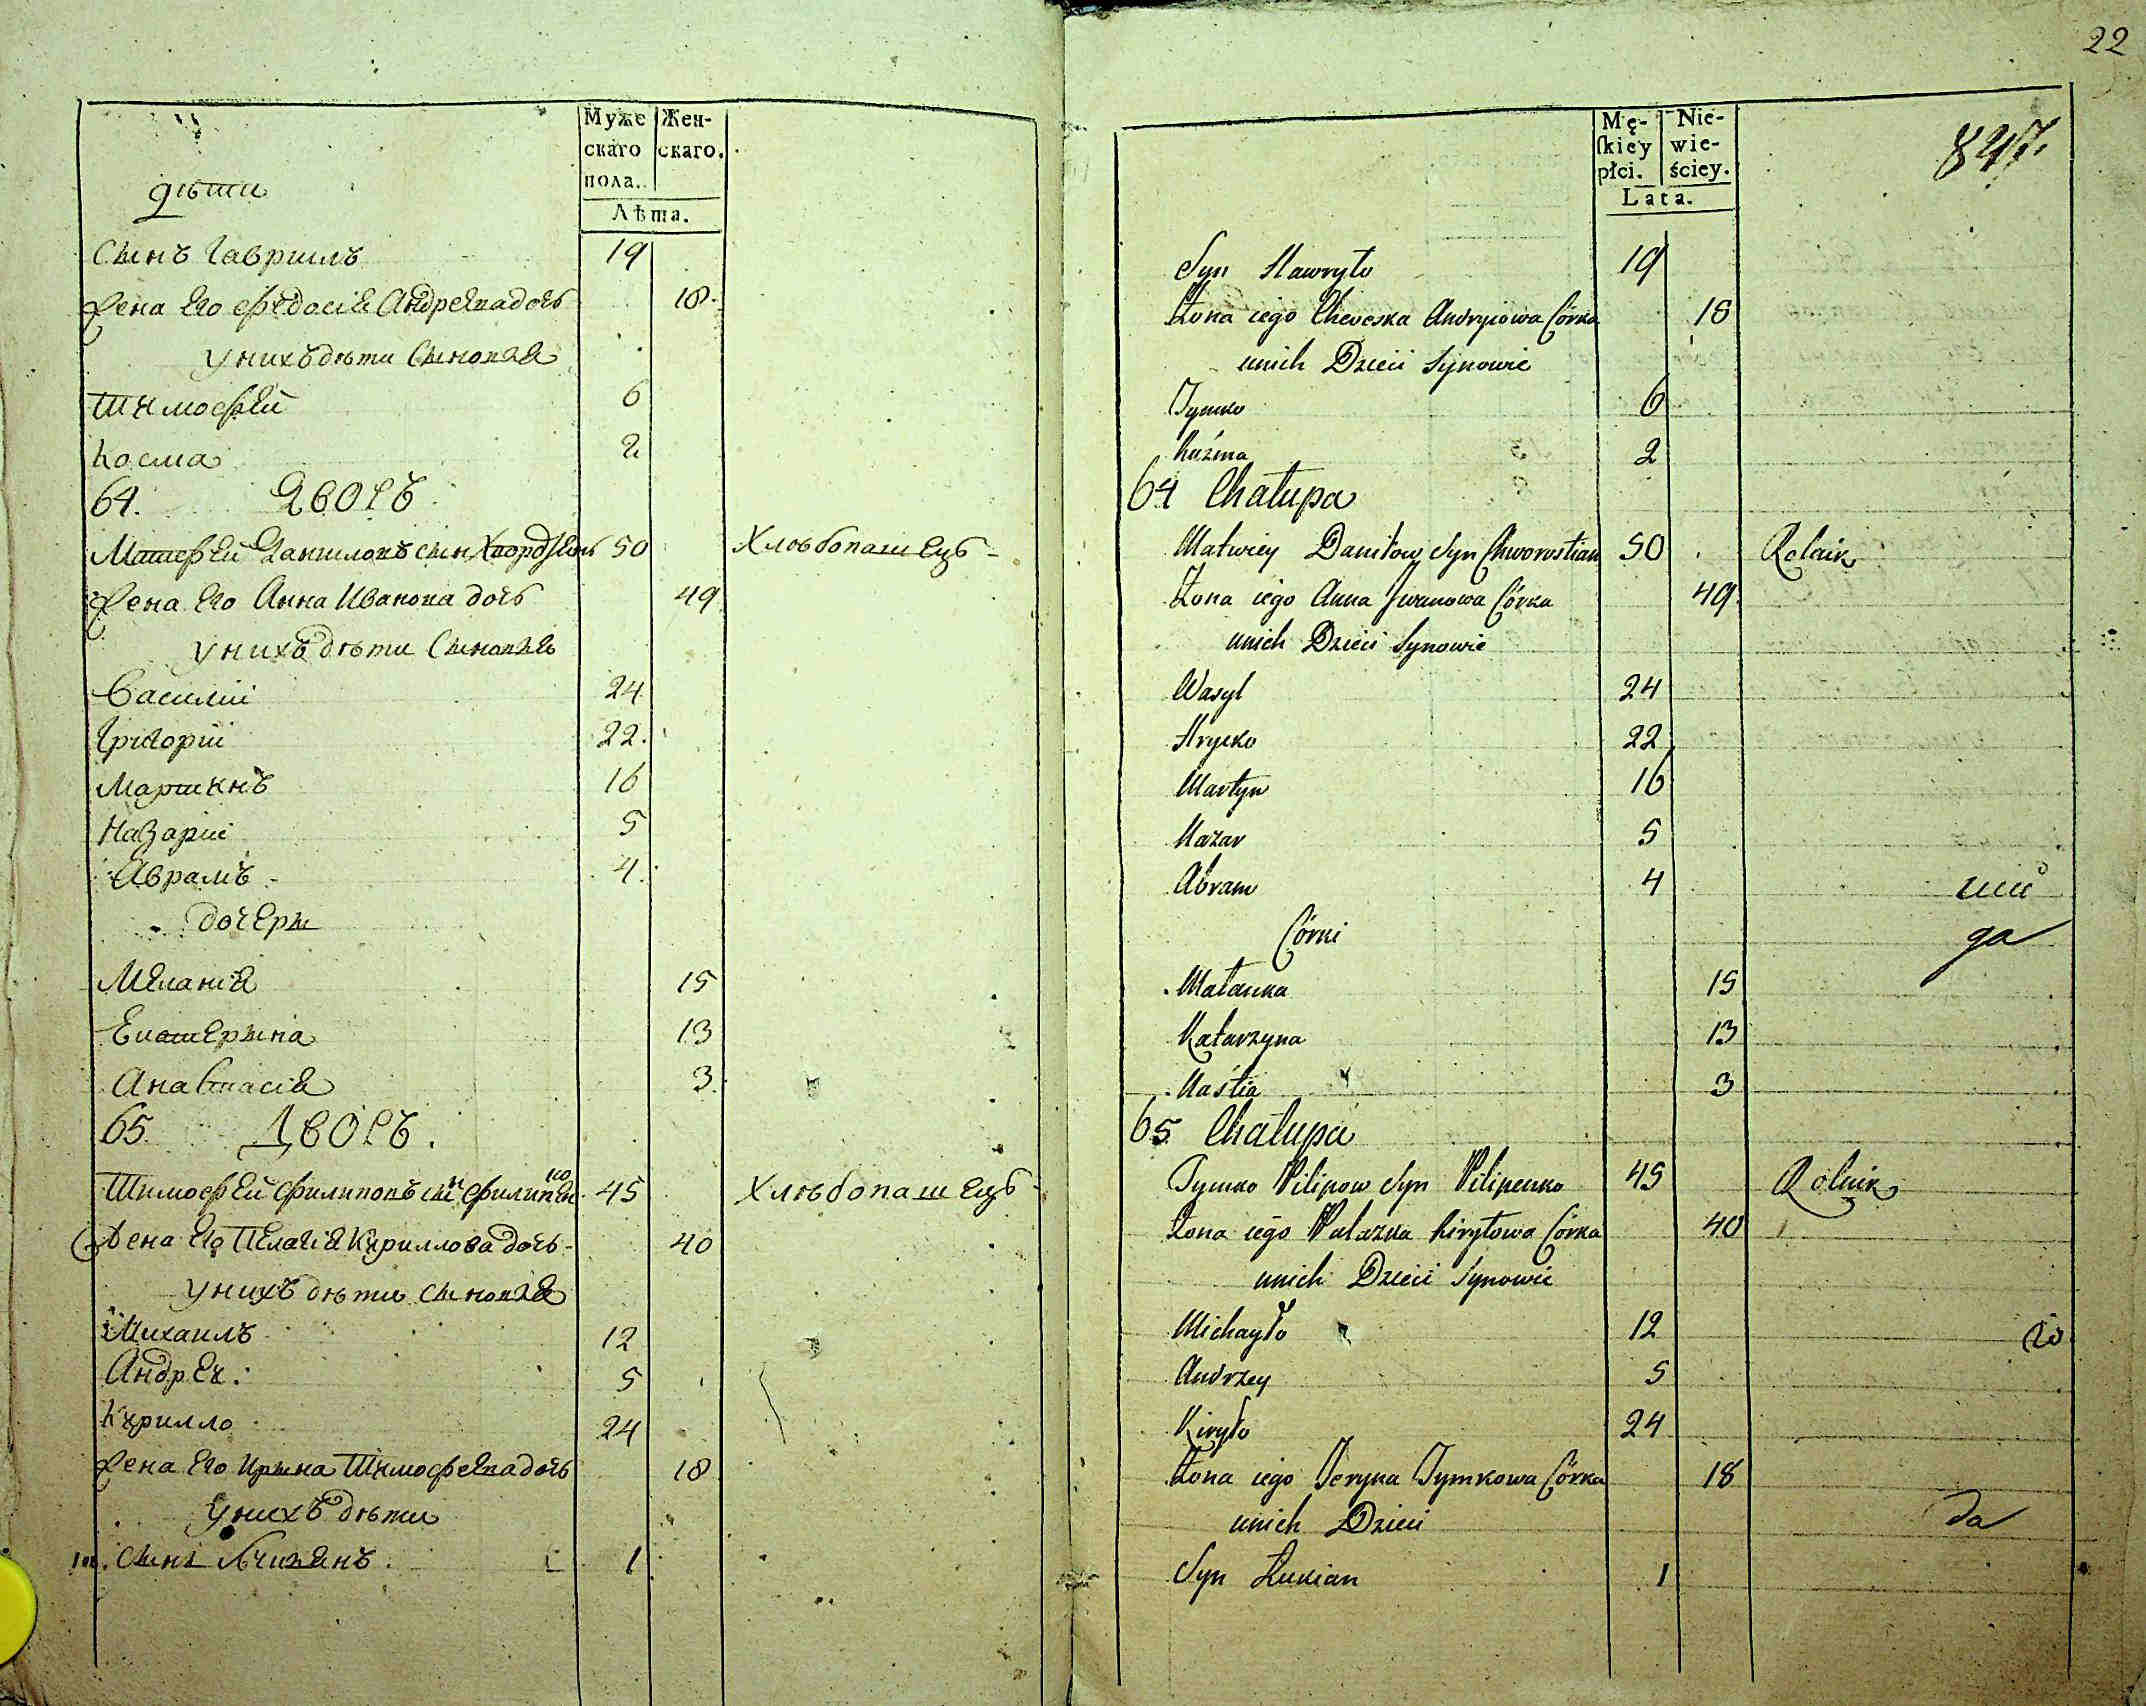 22
Муже
скаго
пола.
Жен-
скаго.
Лѣта.
дѣти
Сынъ Гавриилъ 19
Жена Его Федосія Андреева дочь 18
У нихъ дѣти Сыновья
Тимофей 6
Косма 2
64. Дворъ
Матфей Даниловъ сын 50 Хлѣбопашецъ
Жена Его Анна Иванова дочь 49
У нихъ дѣти Сыновья
Василій 24
Григорій 22.
Мартинъ 16
Назарій 5
Аврамъ 4.
дочери
Меланія 15
Екатерина 13
Анастасія 3
65. Дворъ.
Тимофей Филиповъ сын Филипенко 45 Хлѣбопашецъ
Жена Его Пелагія Кириллова дочь 40
У нихъ дѣти Сыновья
Михаилъ 12
Андрей 5
Кирилло 24
Жена Его Ирина Тимофеева дочь 18
У нихъ дѣти
Сынъ Лукіянъ 1
Mę-
skiey
płci.
Nie-
wie-
ściey.
Lata.
847.
Syn Hawryło 19
Żona iego Cheveska Andryiowa Córka 18
unich Dzieci Synowie
Tymko 6
Kuźma 2
64 Chałupa
Matwiey Daniłow Syn Chworostian 50 Rolnik
Żona iego Anna Jwanowa Córka 49
unich Dzieci Synowie
Wasyl 24
Hrycko 22
Martyn 16
Nazar 5
Abram 4
Córki
Małanka 15
Katarzyna 13
Naścia 3
65 Chałupa
Tymko Pilipow Syn Pilipenko 45 Rolnik
Żona iego Pałazka Kiryłowa Córka 40
unich Dzieci Synowie
Michayło 12
Andrzey 5
Kiryło 24
Żona iego Jeryna Tymkowa Córka 18
unich Dzieci
Syn Łukian 1